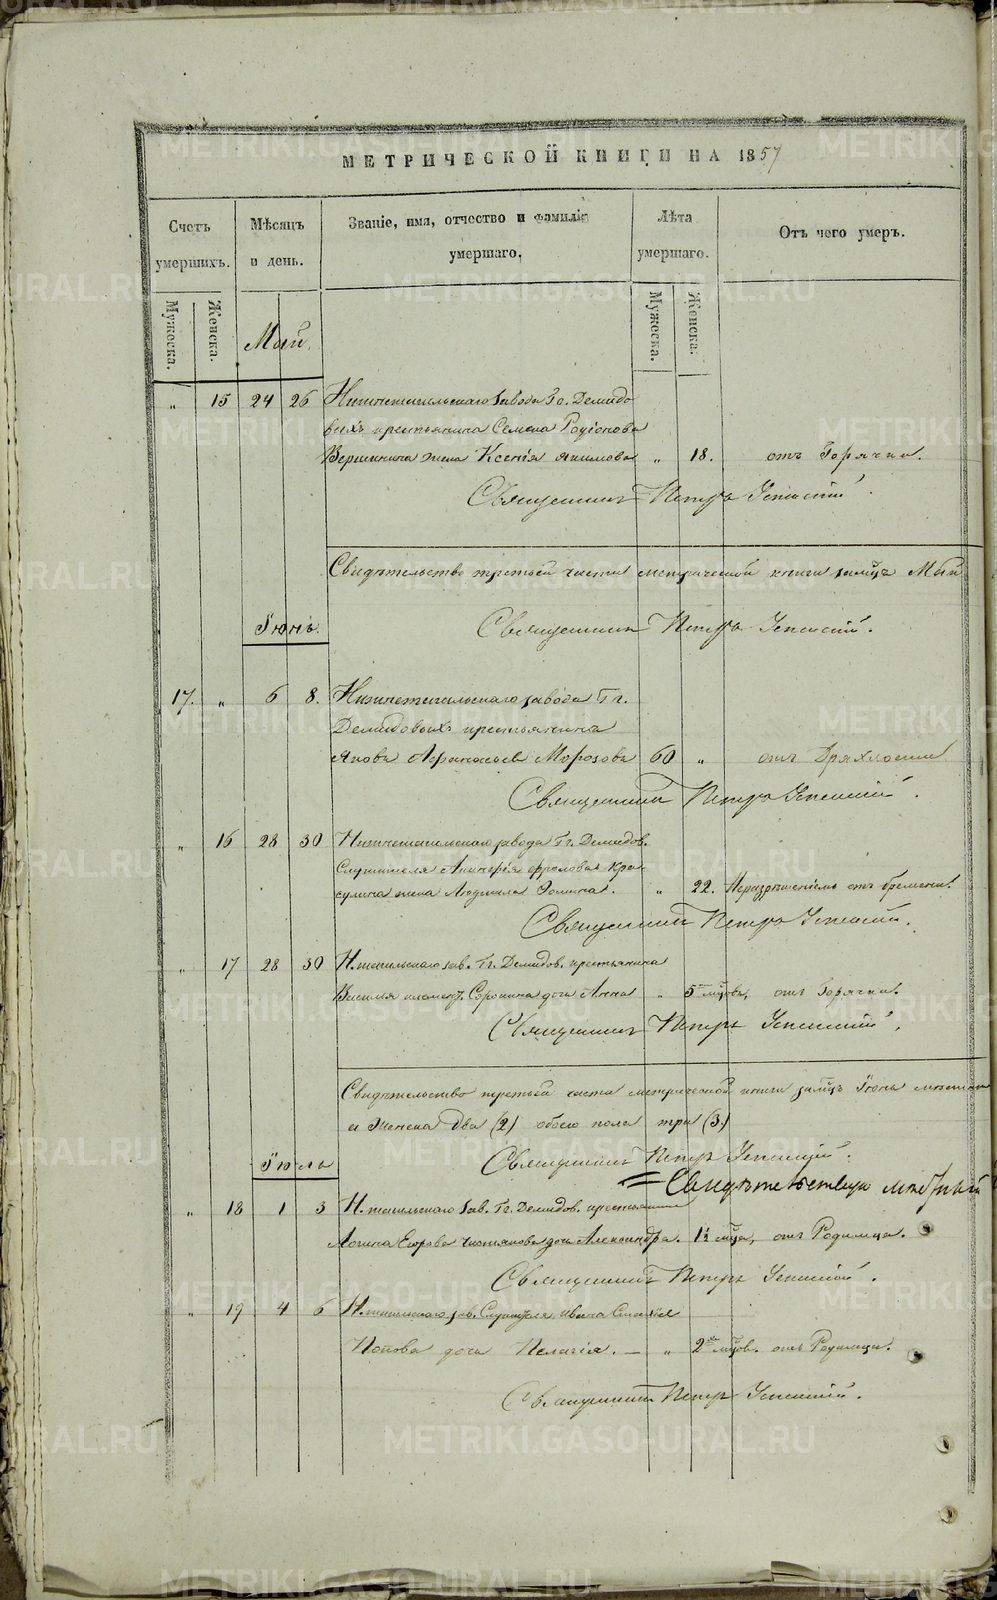 МЕТРИЧЕСКОЙ КНИГИ НА 1857
Счетъ умершихъ.
Мѣсяцъ и день.
Званіе, имя, отчество и фамилія умершаго.
Лѣта умершаго.
Отъ чего умеръ.
Мужеска.
Женска.
Мужеска.
Женска.
Май.
„ 15 24 26 Нижнетагильскаго завода Гг. Демидо
выхъ крестьянина Семена Родіонова
Вершинина жена Ксенія Якимова „ 18. отъ Горячки.
Священникъ Петръ Успенскій.
Свидѣтельство третьей части метрической книги замѣцъ Май
Священникъ Петръ Успенскій.
Іюнь.
17. „ 6 8. Нижнетагильскаго завода Гг.
Демидовыхъ крестьянинъ
Яковъ Афанасьевъ Морозовъ 60 „ отъ Дряхлости
Священникъ Петръ Успенскій.
„ 16 28 30 Нижнетагильскаго завода Гг. Демидов.
Служителя Фролова Кра-
сулина жена Людмила Фомина. „ 22. Неразрѣшеніемъ отъ бремени.
Священникъ Петръ Успенскій.
„ 17 28 30 Н.тагильскаго зав. Гг. Демидов. крестьянина
Василья Сорокина дочь Анна „ 5 мцовъ, отъ Горячки.
Священникъ Петръ Успенскій.
Свидѣтельство третьей части метрической книги замѣцъ Іюнь
и Женска два (2) обоего пола три (3)
Священникъ Петръ Успенскій.
Іюль
Свидѣтельствую
„ 18 1 3 Н.тагильскаго зав. Гг. Демидов. крестьянина
Логина Егорова дочь Александра. 1½ мца, отъ Родимца.
Священникъ Петръ Успенскій.
„ 19 4 6 Н.тагильскаго зав. Служителя Ивана
Попова дочь Пелагія. — „ 2 мцов. отъ Родимца.
Священникъ Петръ Успенскій.
METRIKI.GASO-URAL.RU